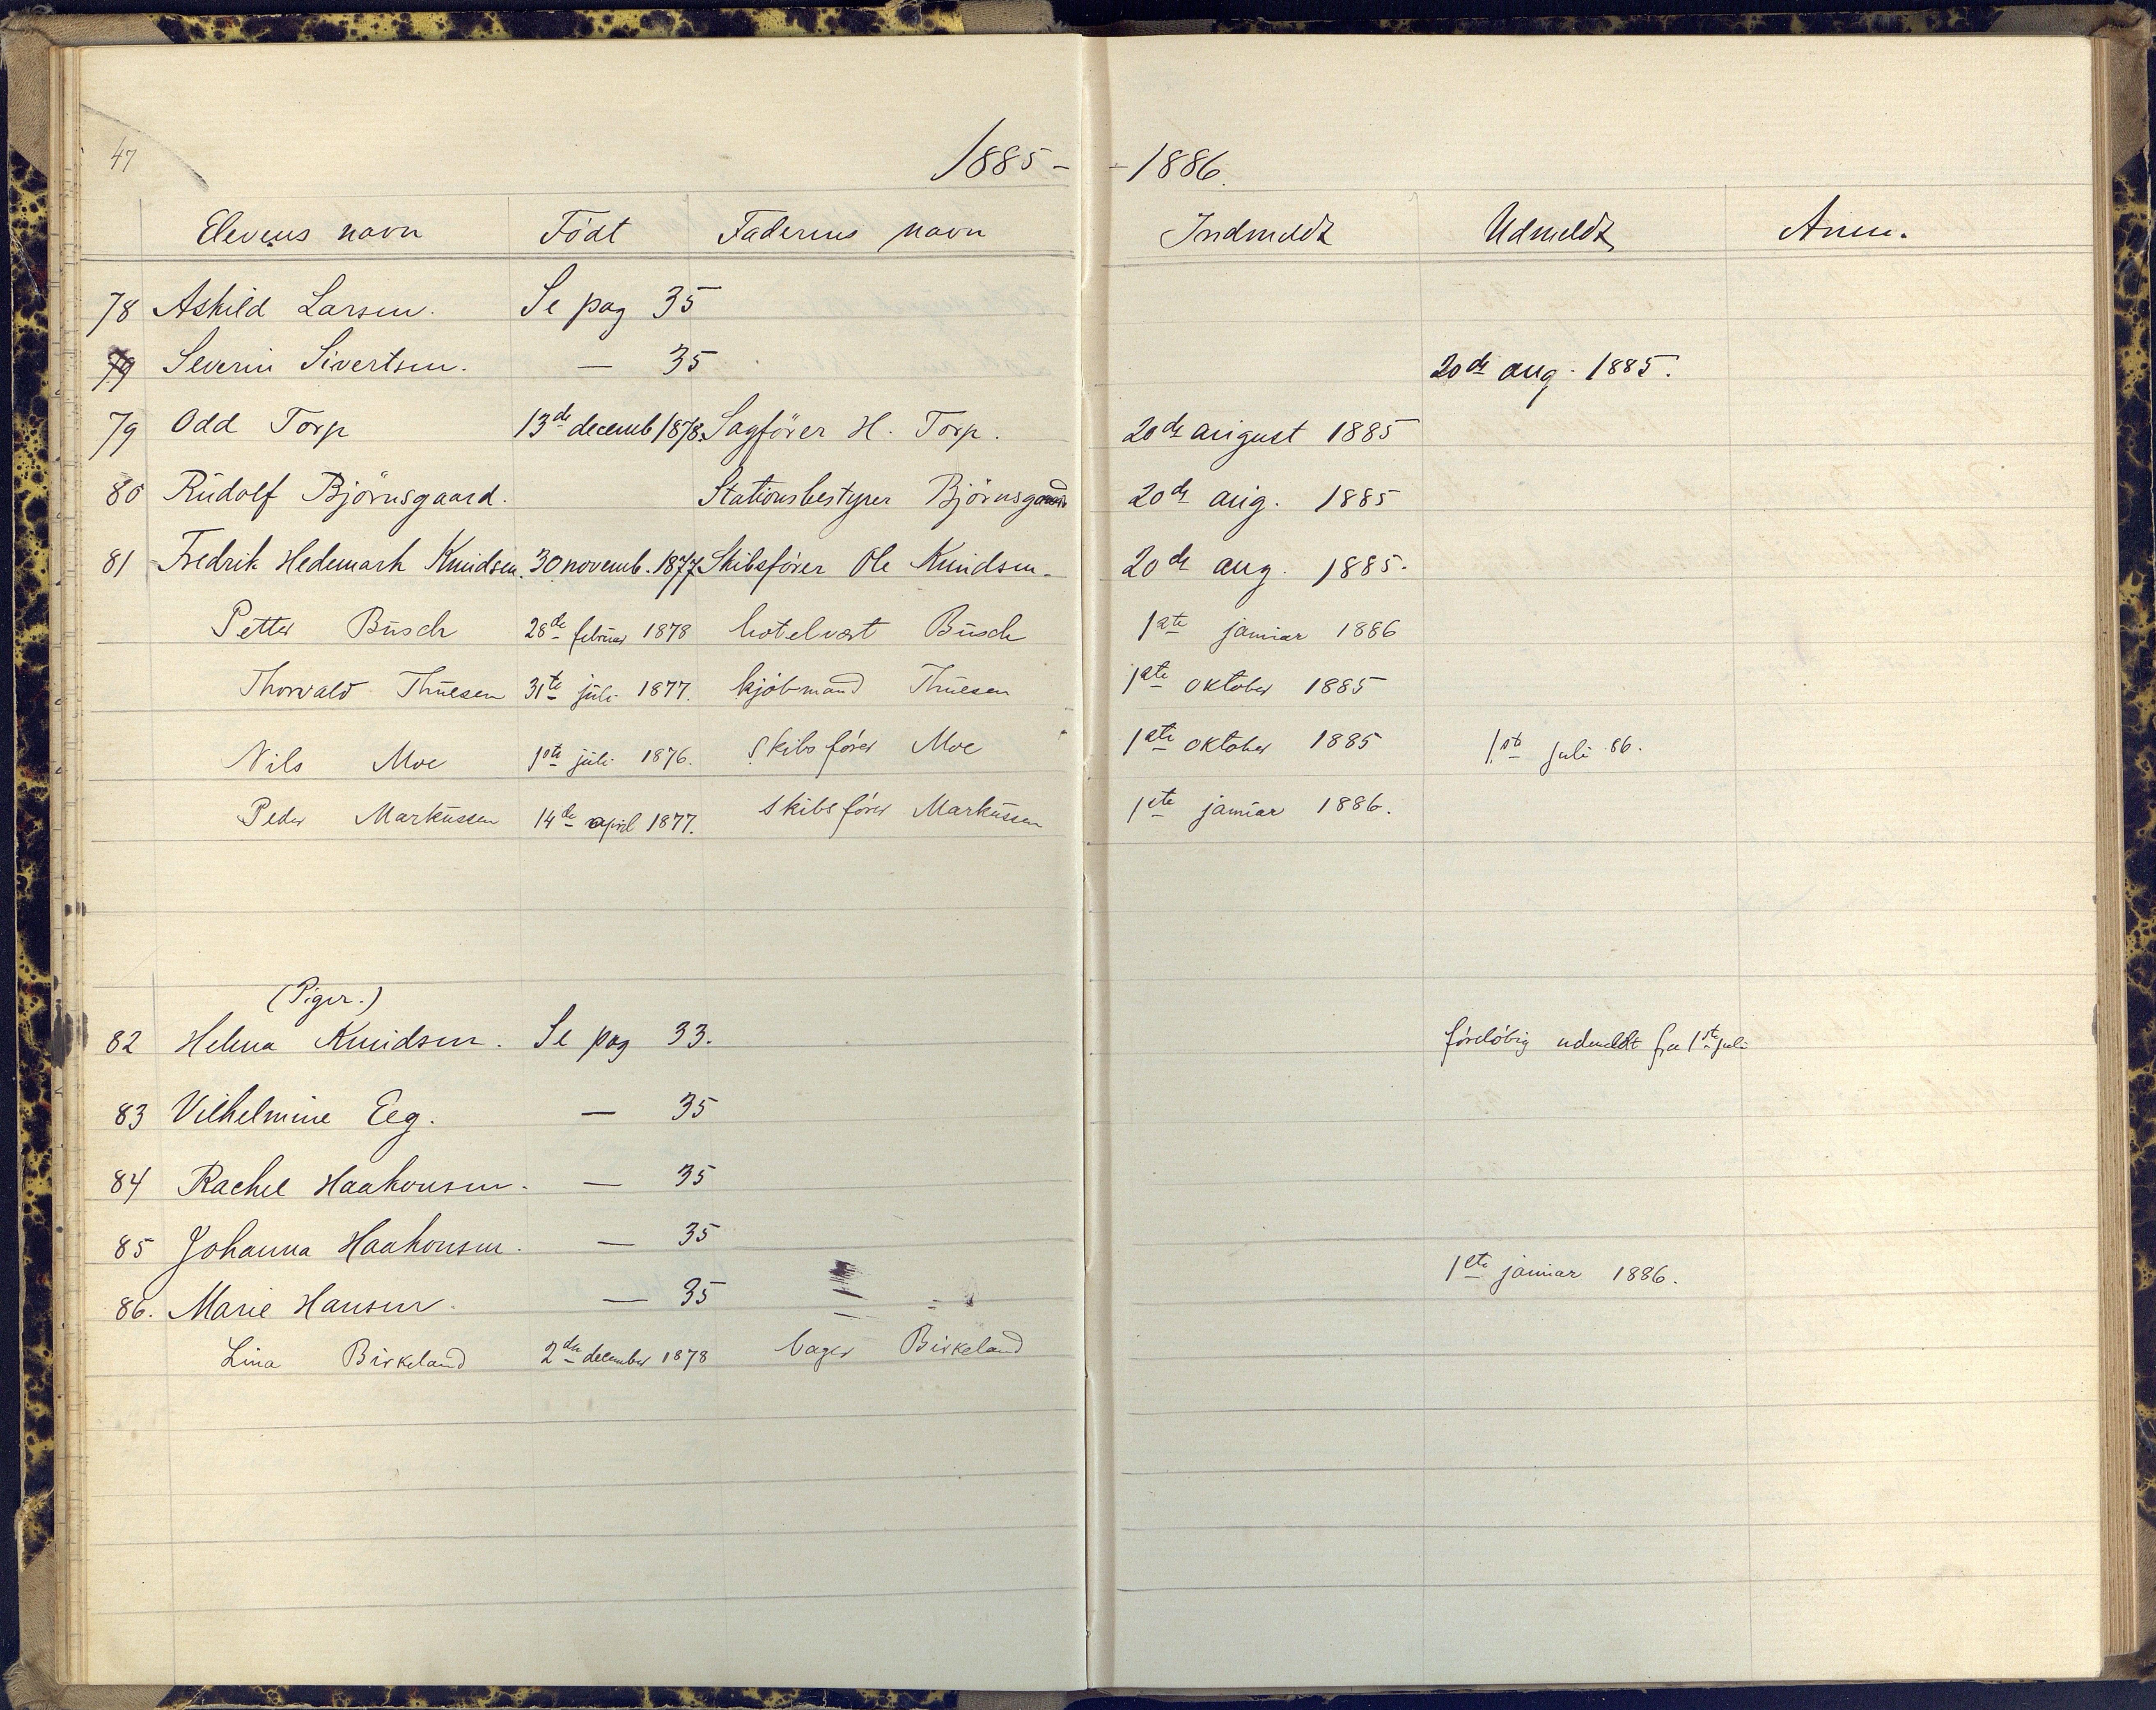 47
1885 – – 1886.
Elevens navn Födt Faderens navn Indmeldt Udmeldt Anm.
78 Askild Larsen. Se pag 35
79 Severin Sivertsen. — 35 20de aug. 1885.
79 Odd Torp 13de decemb 1878. Sagförer H. Torp. 20de august 1885
80 Rudolf Björnsgaard. Stationsbestyrer Björnsgaard 20de aug. 1885
81 Fredrik Hedemark Knudsen. 30 novemb. 1877 Skibsförer Ole Knudsen. 20de aug. 1885.
Petter Busch 28de februar 1878 hotelvært Busch 1ste januar 1886
Thorvald Thuesen 31te juli 1877. kjöbmand Thuesen 1ste oktober 1885
Nils Moe 1ste juli 1876. Skibsförer Moe 1ste oktober 1885 1ste juli 86.
Peder Markussen 14de april 1877. Skibsförer Markussen 1ste januar 1886.
(Piger.)
82 Helena Knudsen. Se pag 33. foreløbig udmeldt fra 1ste juli
83 Vilhelmine Eeg. — 35
84 Rachel Haakonsen. — 35
85 Johanna Haakonsen. — 35
86. Marie Hansen. — 35 1ste januar 1886.
Lina Birkeland 2den december 1878 bager Birkeland